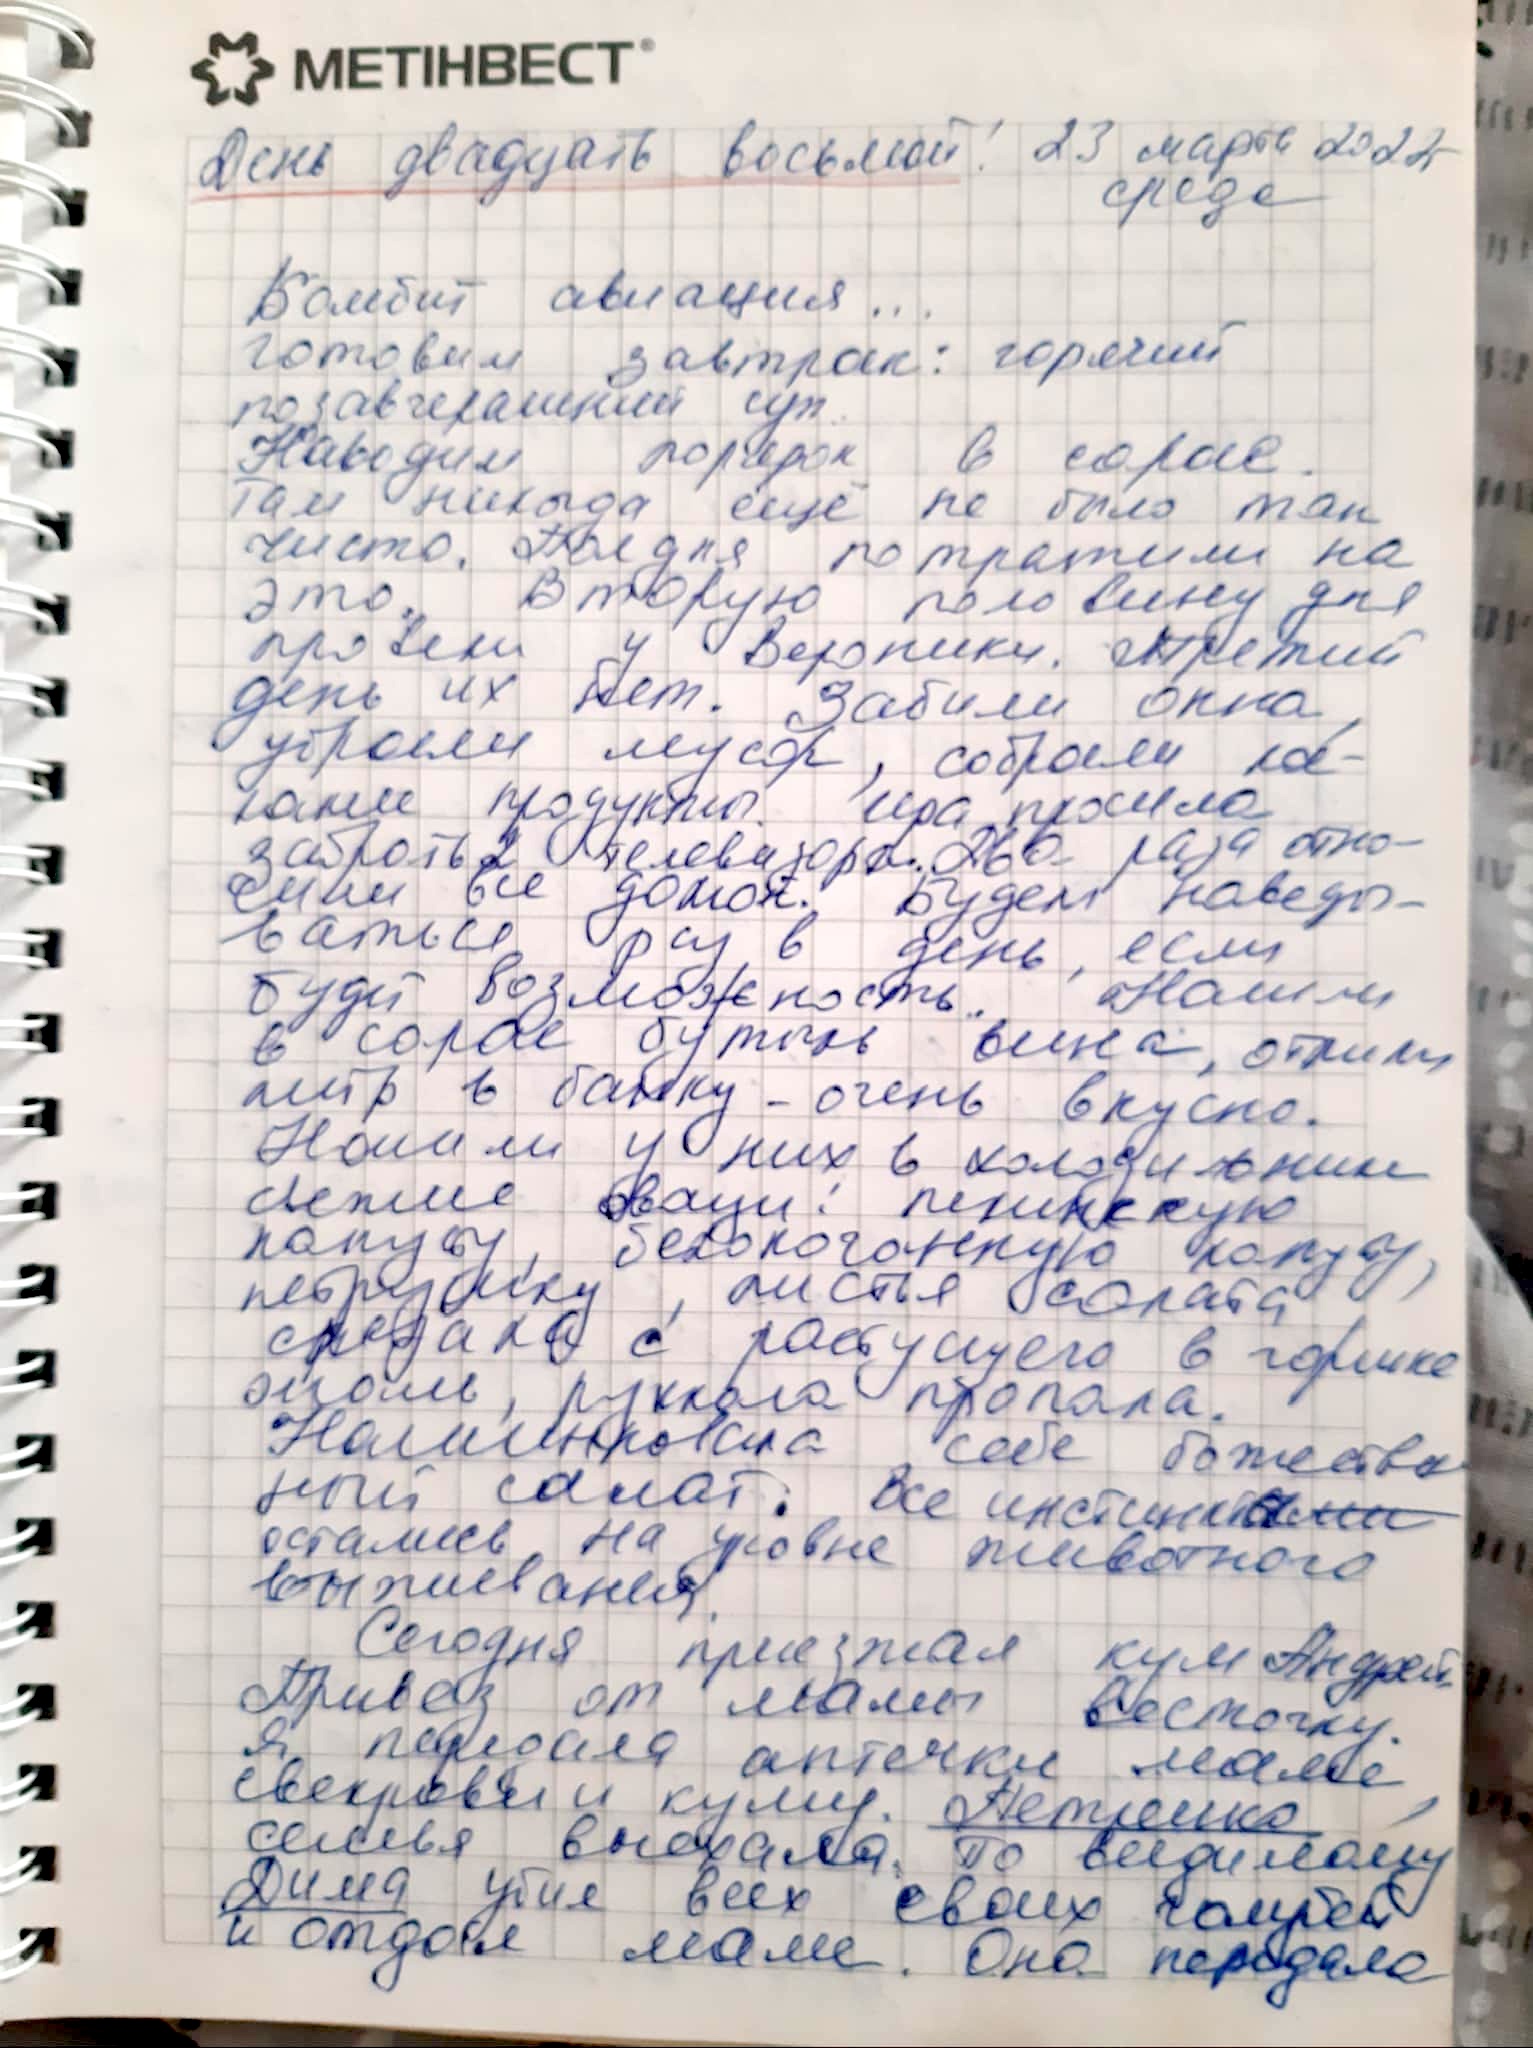 МЕТІНВЕСТ®
День двадцать восьмой! 23 марта 2022г
среда
Бомбит авиация...
готовим завтрак: горячий
позавчерашний суп.
Наводим порядок в сарае.
Там никогда ещё не было так
чисто. Пол дня потратили на
это. Вторую половину дня
провели у Вероники. Третий
день их нет. Забили окна,
убрали мусор, собрали ка-
кание продукты. Ира просила
забрать 2 телевизора. Два раза отно-
сили все домой. Будем наведы-
ваться раз в день, если
будет возможность. Нашли
в сарае бутыль вина, отлили
литр в банку - очень вкусно.
Нашли у них в холодильнике
свежие овощи: пекинскую
капусту, белокочанную капусту,
петрушку, листья салата,
срезала с растущего в горшке
зелень, руккола пропала.
Нашинковала себе божествен
ный салат. Все инстинкты
остались на уровне животного
выживания.
Сегодня приезжал кум Андрей.
Привез от мамы весточку.
Я передала аптечки маме,
свекрови и куму. Петренко
семья выехала. По видимому
Дима убил всех своих голубей
и отдал маме. Она передала